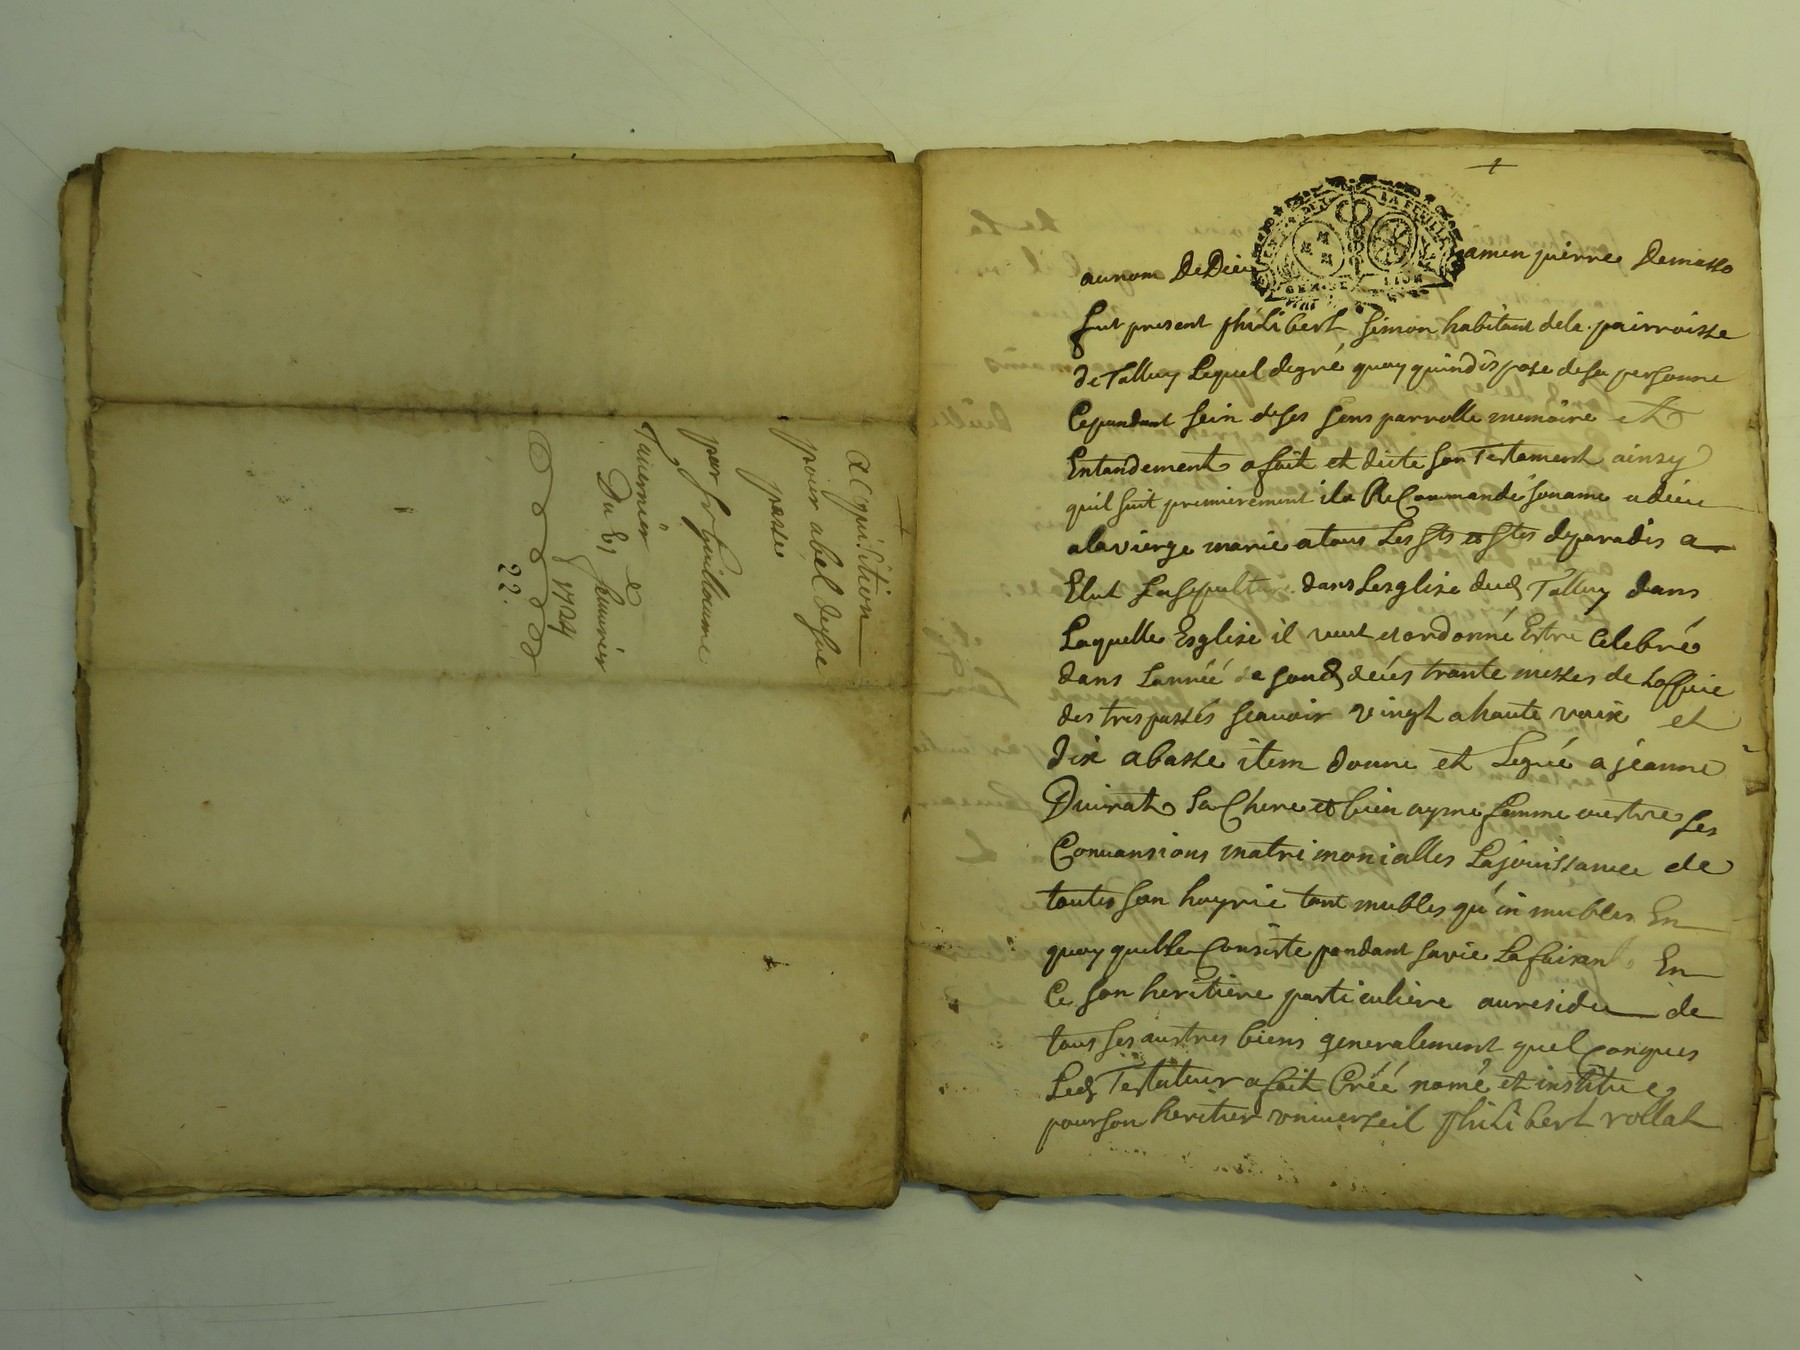 acquisition
pour abel desue
passée
par Sr guillaume
Tavernier
Du 13 feuvrier
1724
22.
+
au nom De Dieu amen pierre Demasso
fut present philibert Simon habitant dela pairroisse
de Talluy Lequel degré quoy quindispose desa personne
Cepandant sein deses sens parrolle memoire et
Entandement a fait et dicte son Testament ainsy
quil suit premierement ila ReCommandé son ame adieu
alavierge marie atous Les Sts et Stes deparadis a
Elut Sa Sepulture dans Lesglise dud Talluy dans
Laquelle Esglise il veut et ordonné Estre Celebré
dans Lannéé de son deces trante messes de Loffice
des trespassés scauoir vingt a haute voix et
dix abasse item donne et Legué a jeanne
sa Chere et bien ayme femme outre Les
Conuansions matrimonialles La jouissance de
toutes son hoyrie tant mubles qu'in mubles En
quoy quelle Consiste pandant savie La faisant En
Ce son heritiere particuliere au residu de
tous ses austres biens generalement quelConques
Led Testateur a fait Créé nomé et institue
pour son heritier vniuerseil philibert rollat